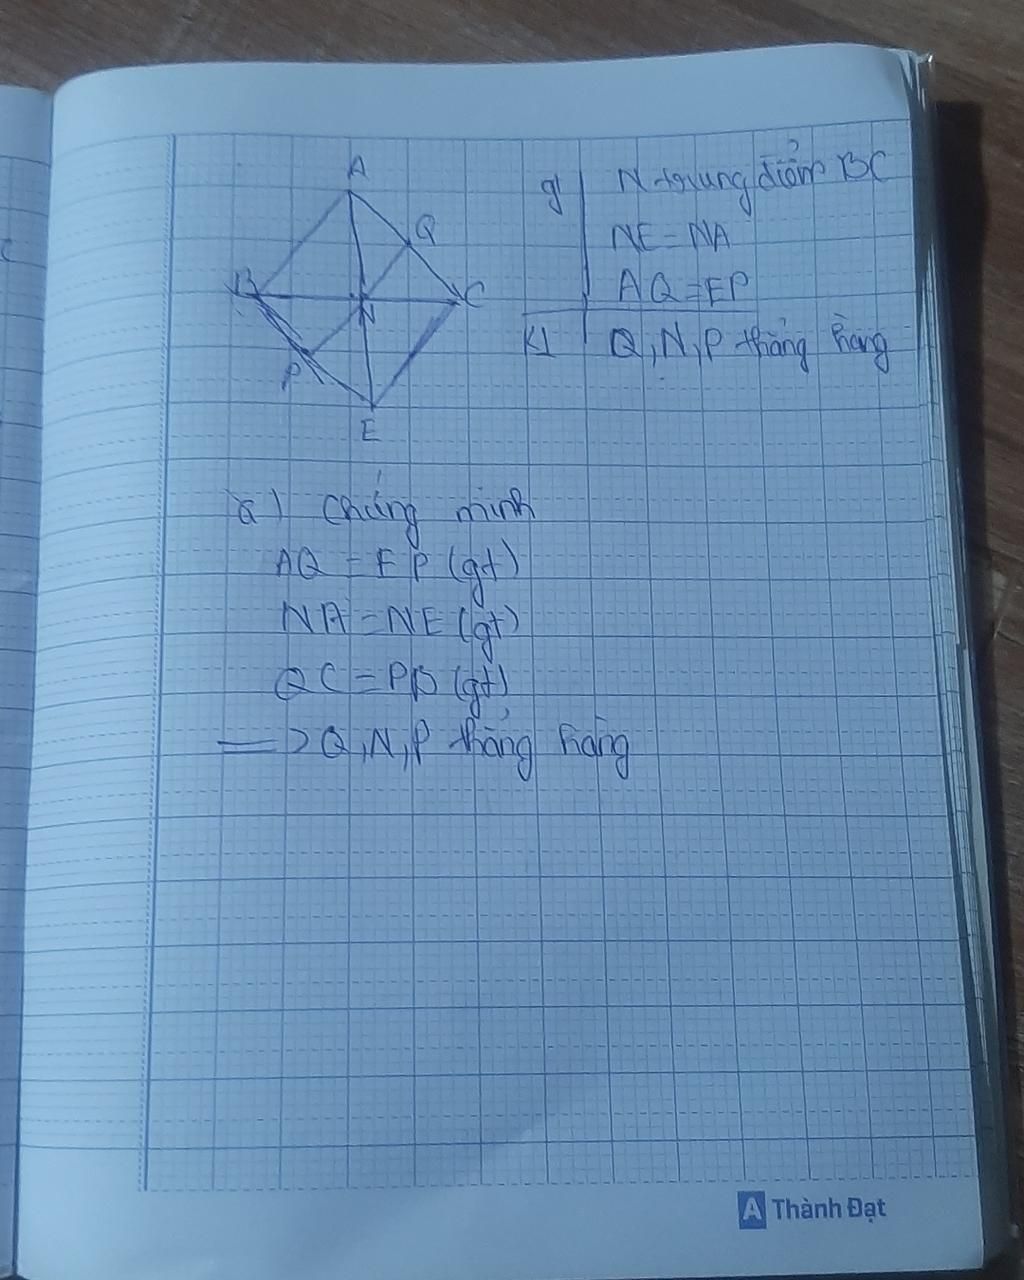 A
Q
B
C
N
P
E
gt N trung điểm BC
NE = NA
AQ = EP
Kl Q, N, P thẳng hàng
a) Chứng minh
AQ = EP (gt)
NA = NE (gt)
QC = PB (gt)
=> Q, N, P thẳng hàng
A Thành Đạt